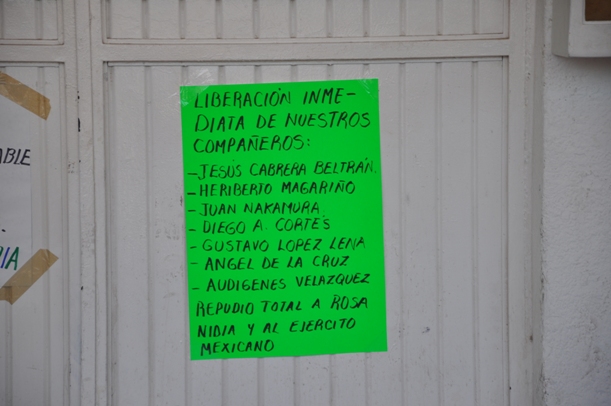 LIBERACIÓN INME-
DIATA DE NUESTROS
COMPAÑEROS:
- JESÚS CABRERA BELTRÁN.
- HERIBERTO MAGARIÑO
- JUAN NAKAMURA.
- DIEGO A. CORTÉS
- GUSTAVO LOPEZ LENA
- ANGEL DE LA CRUZ
- AUDIGENES VELAZQUEZ
REPUDIO TOTAL A ROSA
NIDIA Y AL EJERCITO
MEXICANO
ABLE
IA